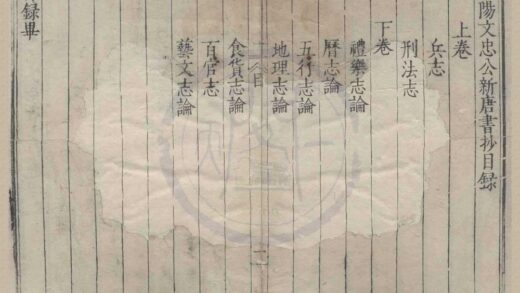 陽文忠公新唐書抄目録
上卷
兵志
刑法志
下卷
禮樂志論
曆志論
五行志論
地理志論
食貨志論
百官志
藝文志論
録畢